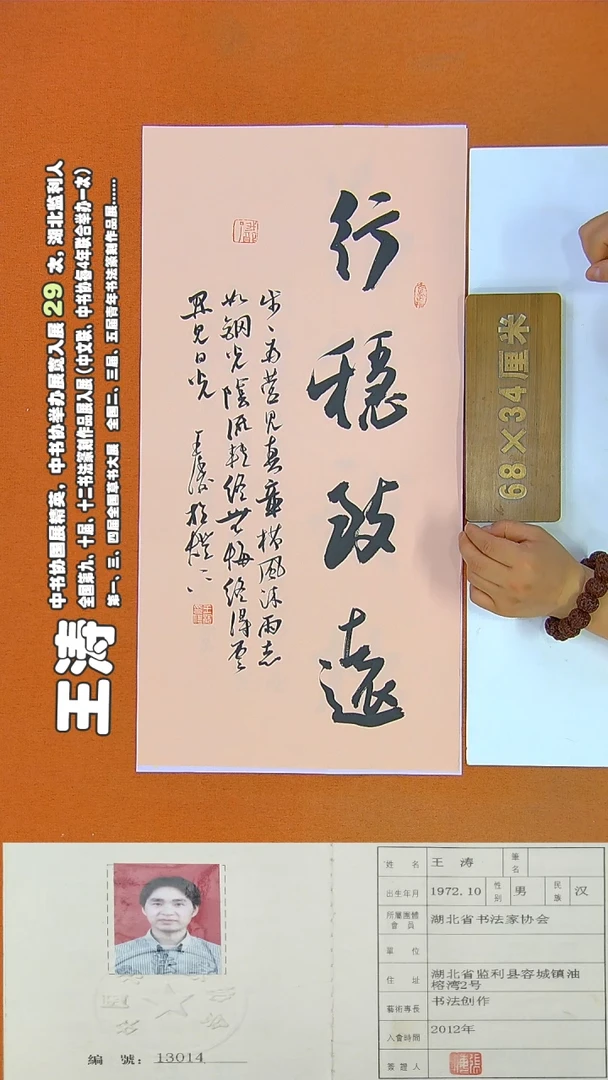 王涛
中书协国展精英，中书协举办展赛入展 29 次，湖北监利人
全国第九、十届、十二书法篆刻作品展入展（中文联、中书协每4年联合举办一次）
全国二、三届、五届青年书法篆刻作品展......
行穩致遠
步、為營見真章櫛風沐雨志
如鋼光陰流轉終無悔終得雲
開見日光 王濤
68×34厘米
姓 名 王 涛 筆名
出生年月 1972.10 性別 男 民族 汉
所屬團體會員 湖北省书法家协会
單 位
住 址 湖北省监利县容城镇油
榕湾2号
藝術專長 书法创作
入會時間 2012年
簽證人
編 號：13014